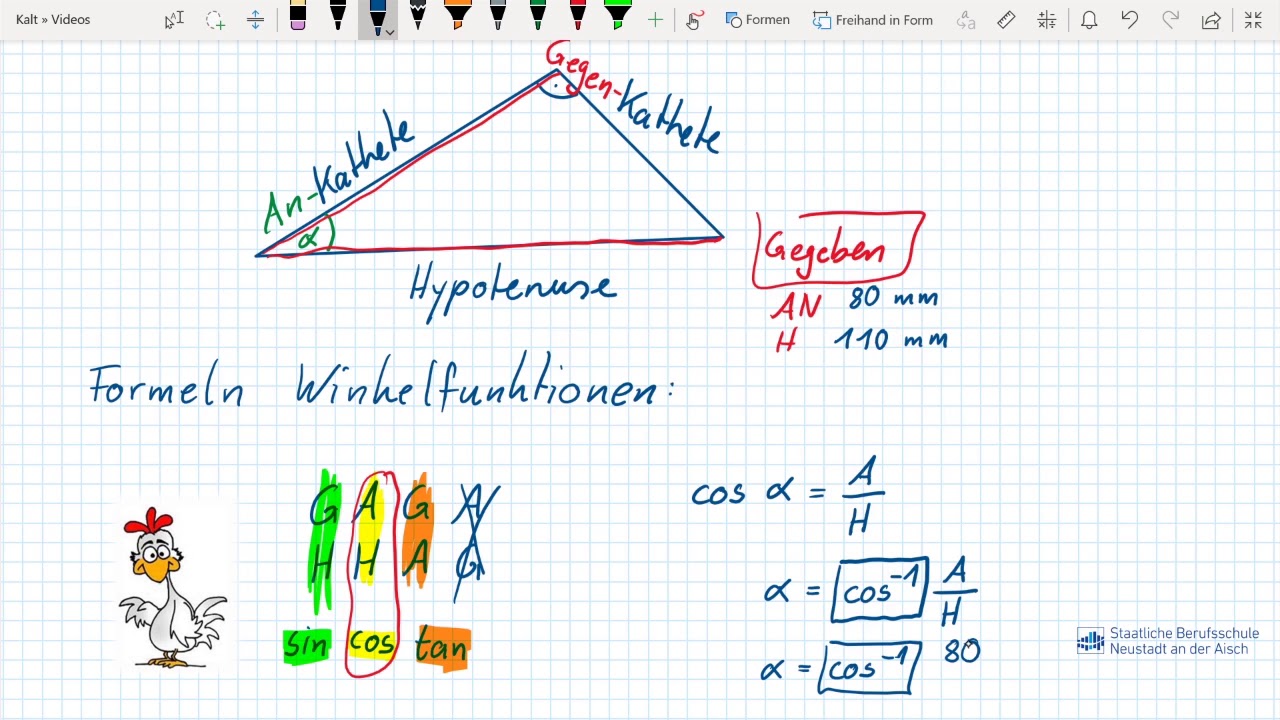 Kalt » Videos
Formen
Freihand in Form
Gegen-Kathete
An-Kathete
α
Hypotenuse
Gegeben
AN 80 mm
H 110 mm
Formeln Winkelfunktionen:
G A G A
H H A G
sin cos tan
cos α = A
H
α = cos⁻¹ A
H
α = cos⁻¹ 80
Staatliche Berufsschule
Neustadt an der Aisch